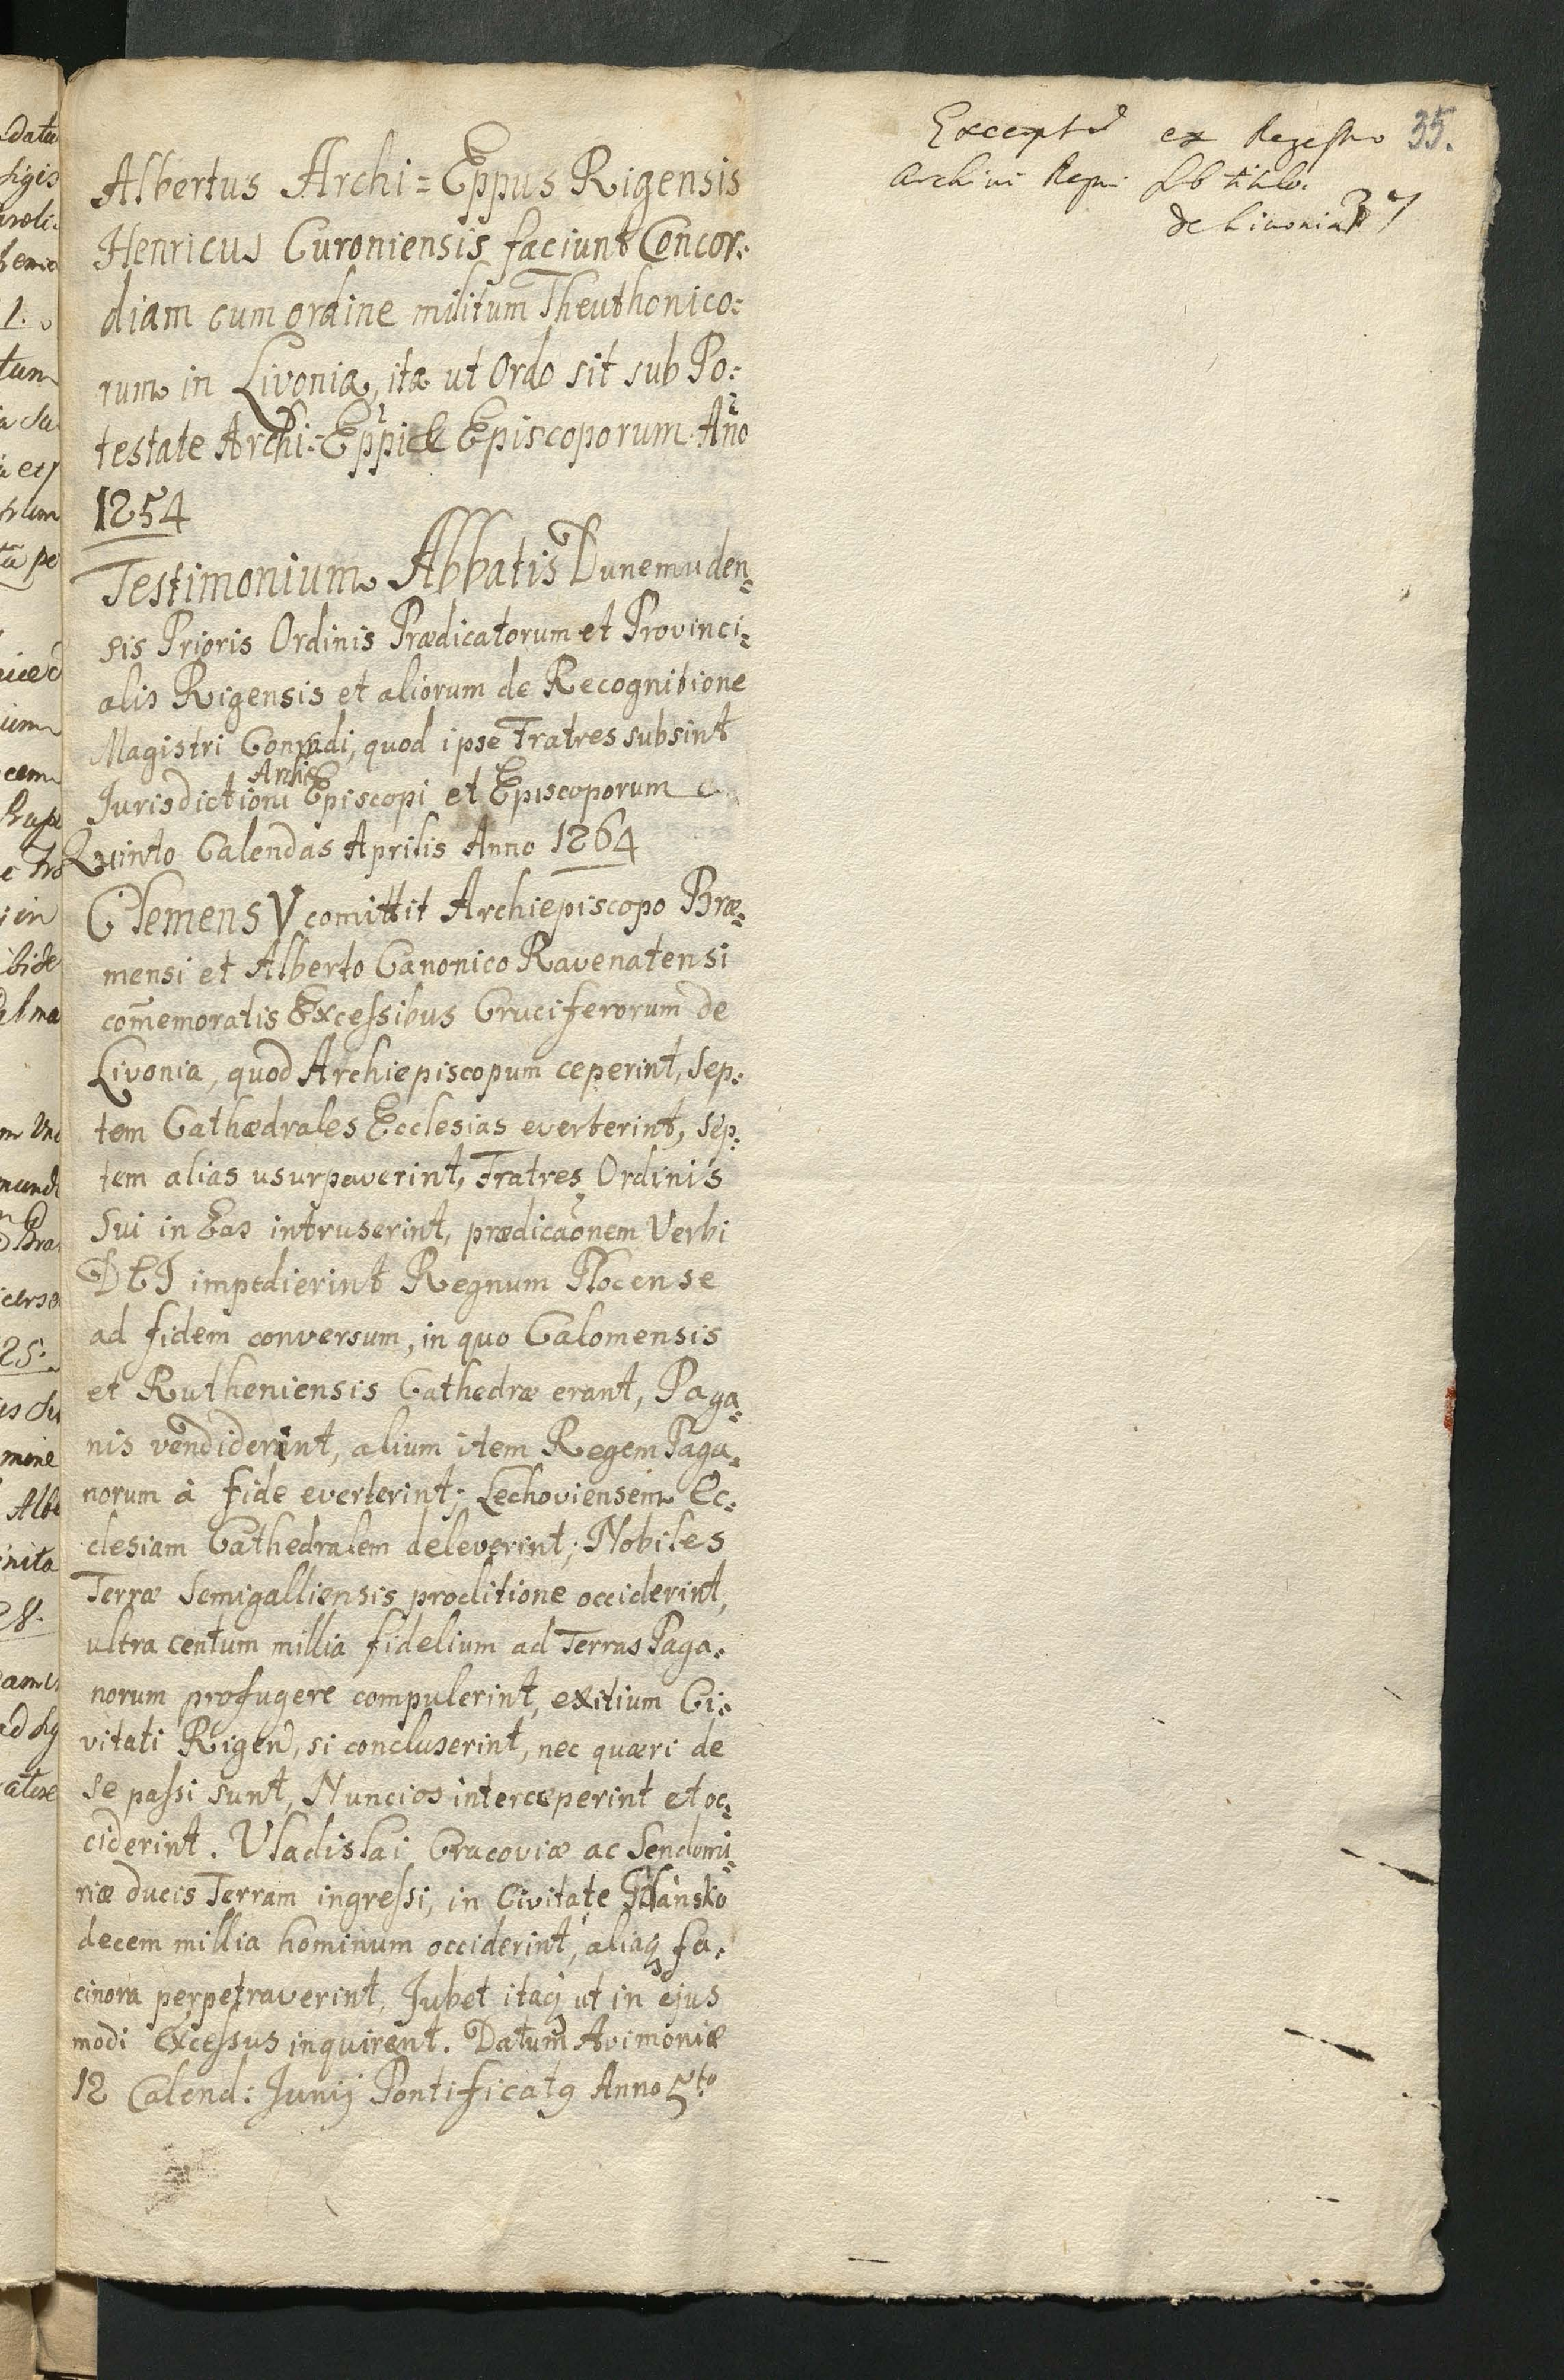 Albertus Archi=Eppus Rigensis
Henricus Curoniensis faciunt Concor:
diam cum ordine militum Theuthonico:
rum in Livonia, ita ut Ordo sit sub Po:
testate Archi:Eppi & Episcoporum Año
1254
Testimonium Abbatis Dunemuden:
sis Prioris Ordinis Prædicatorum et Provinci:
alis Rigensis et aliorum de Recognitione
Magistri Conradi, quod ipse Fratres subsint
Archi
Jurisdictioni Episcopi et Episcoporum
Quinto Calendas Aprilis Anno 1264
Clemens V comittit Archiepiscopo Bræ:
mensi et Alberto Canonico Ravenatensi
com̄emoratis Excessibus Cruciferorum de
Livonia, quod Archiepiscopum ceperint, Sep:
tem Cathædrales Ecclesias everterint, Sep:
tem alias usurpaverint, Fratres Ordinis
Sui in Eas intruserint, prædicaõnem Verbi
DEI impedierint Regnum Plocense
ad fidem conversum, in quo Calomensis
et Rutheniensis Cathedræ erant, Paga:
nis vendiderint, alium item Regem Paga:
norum à fide everterint; Lechoviensem Ec:
clesiam Cathedralem deleverint; Nobiles
Terræ Semigalliensis proditione occiderint,
ultra centum millia fidelium ad Terras Paga:
norum profugere compulerint, exitium Ci:
vitati Rigen, si concluserint, nec quæri de
se passi sunt, Nuncios interceperint et oc:
ciderint. Vladislai Cracoviæ ac Sendomi:
riæ ducis Terram ingressi, in Civitate Gdansko
decem millia hominum occiderint, aliaq fa:
cinora perpetraverint, Jubet itaq ut in ejus
modi excessus inquirent. Datum Avimoniæ
12 Calend: Junij Pontificatq Anno 5to
ex Regestro 35.
Archivi Regni sub titulo.
de Livonia 37